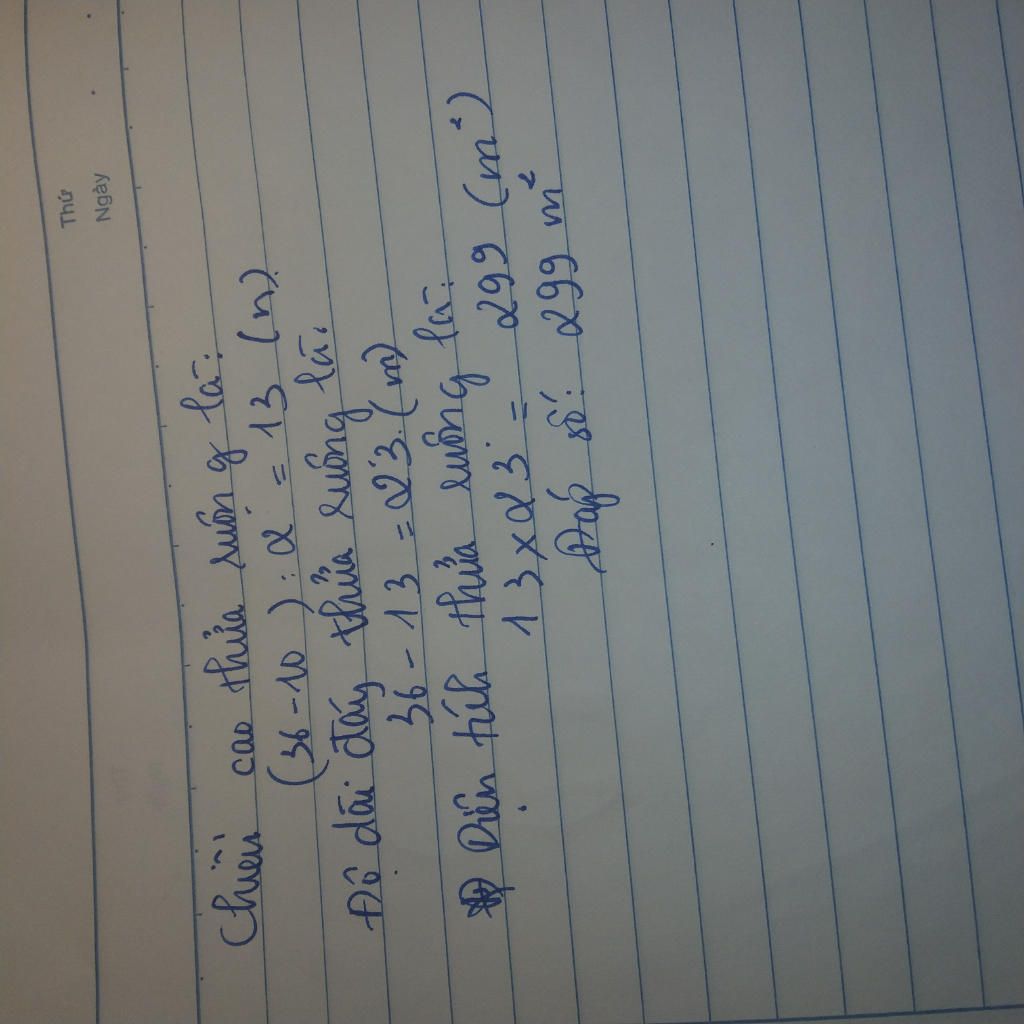 Thứ
Ngày
Chiều cao thửa ruộng là:
(36 - 10) : 2 = 13 (m)
Độ dài đáy thửa ruộng là:
36 - 13 = 23 (m)
Diện tích thửa ruộng là:
13 x 23 = 299 (m²)
Đáp số: 299 m²